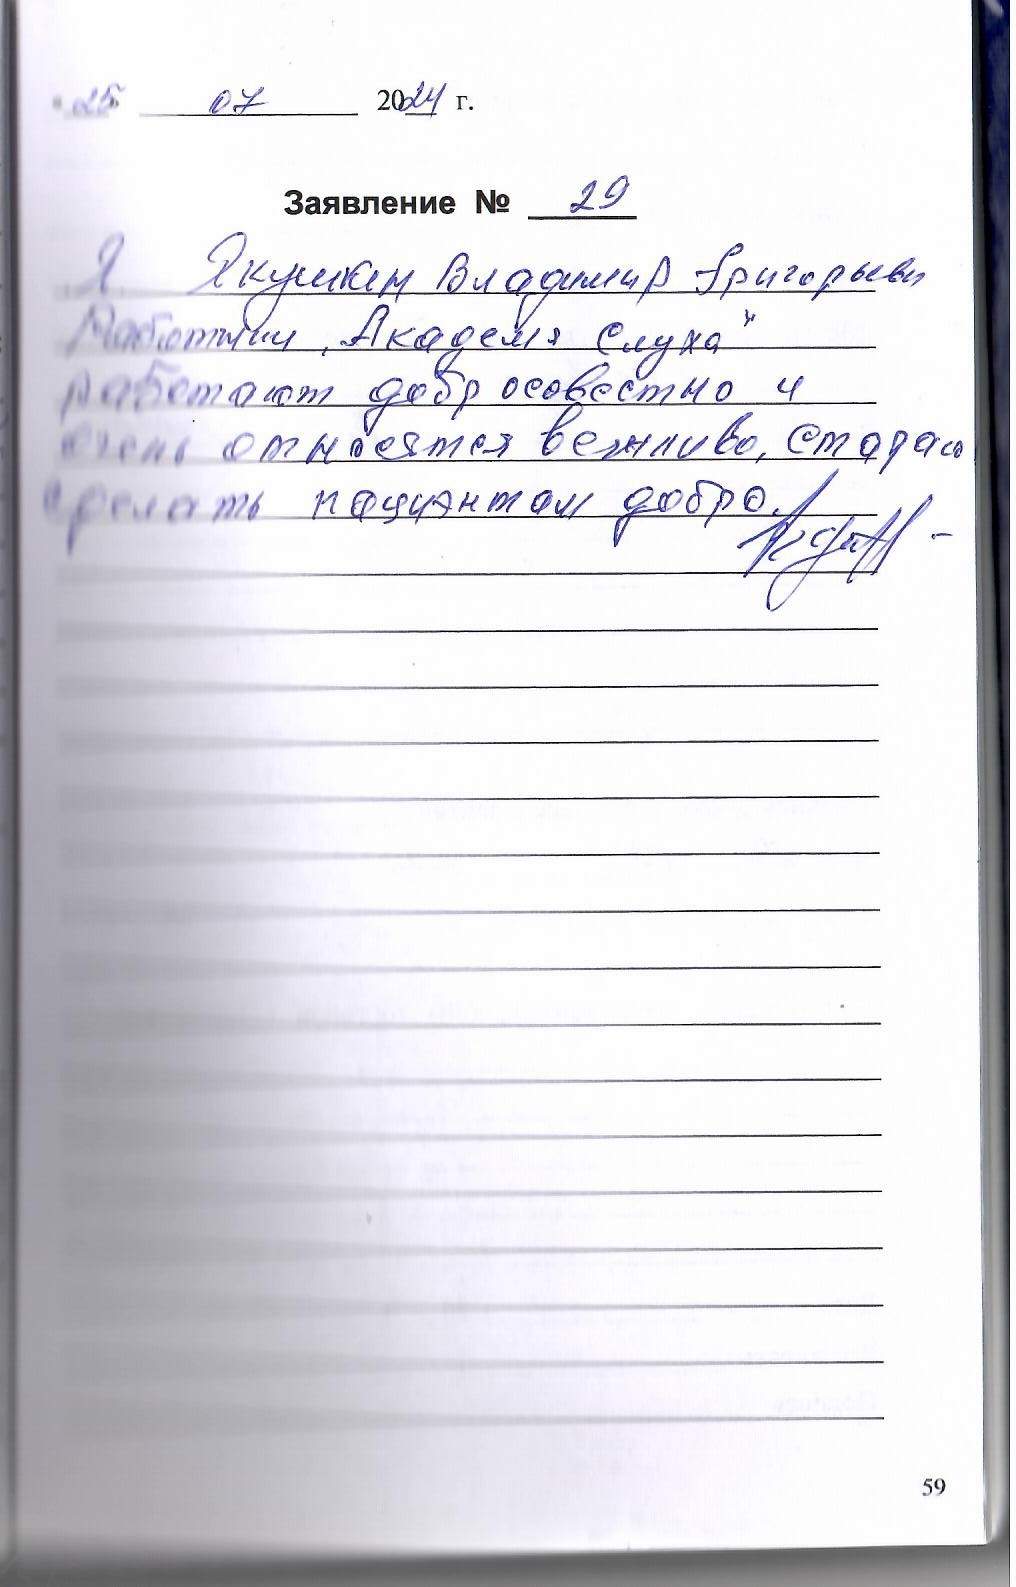 "25" 07 2024 г.
Заявление № 29
Я Якушкин Владимир Григорьеви
Работники "Академя Слуха"
работают добросовестно и
очень относятся вежливо, стараю
сделать пациэнтам добро.
59